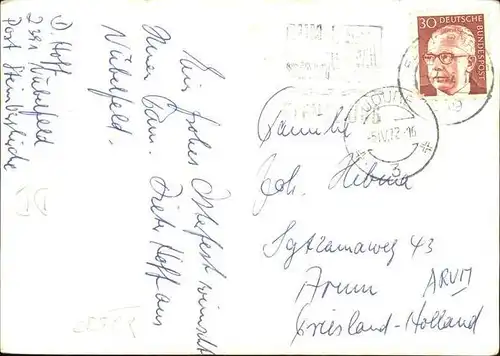 D. Hoff
2391 Nübelfeld
Post Steinbergkirche
Ein frohes Osterfest wünscht
Ihnen Fam. Dieter Hoff aus
Nübelfeld.
30 DEUTSCHE
BUNDESPOST
Familie
Joh. Hibma
Sytzamaweg 43
Arum ARUM
Friesland-Holland